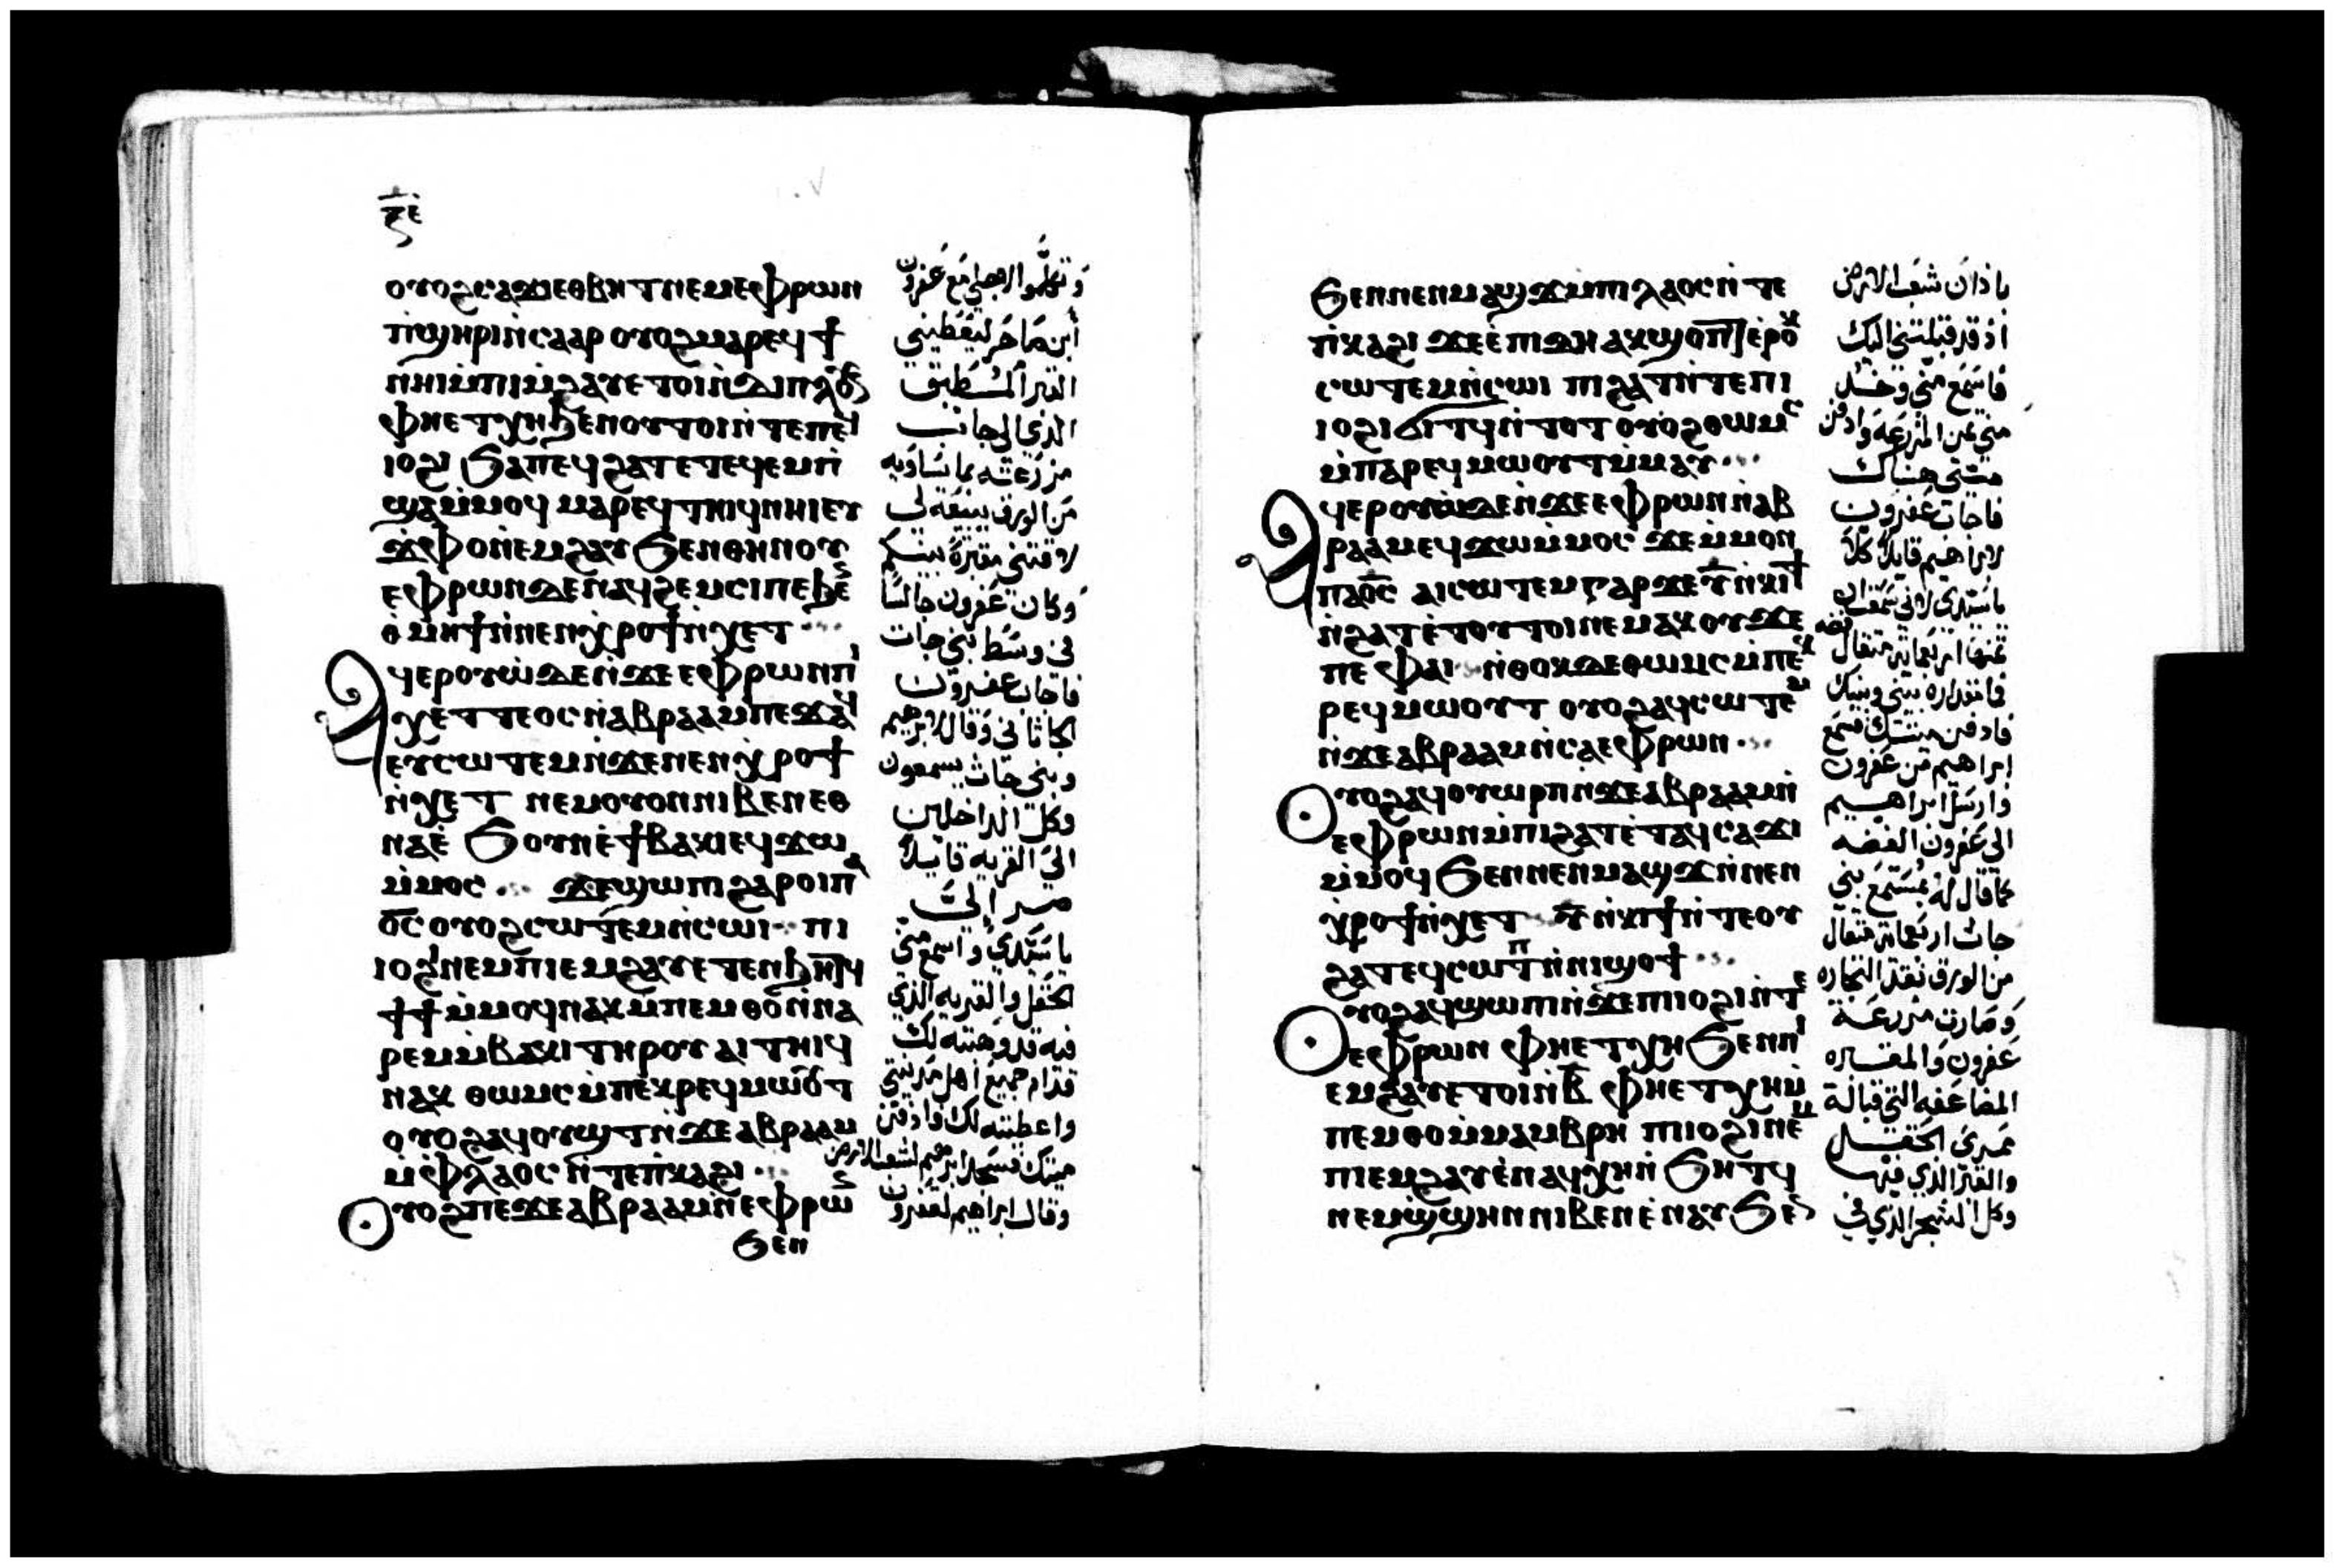 ⲟⲩⲟϩ ⲥⲁϫⲓ ⲉⲑⲃⲏⲧ ⲛⲉⲙ ⲉⲫⲣⲱⲛ
ⲡϣⲏⲣⲓ ⲛ̇ⲥⲁⲁⲣ ⲟⲩⲟϩ ⲙⲁⲣⲉϥϯ
ⲛⲏⲓ ⲙ̇ⲡⲓⲙ̇ϩⲁⲩ ⲉⲧⲟⲓ ⲛ̇ⲇⲓⲡⲗⲟⲩⲥ
ⲫⲏⲉⲧⲭⲏ ϧⲉⲛ ⲟⲩⲧⲟⲓ ⲛ̇ⲧⲉ ⲡⲉϥ
ⲓⲟϩⲓ ϧⲁ ⲡⲉϥϩⲁⲧ ⲉⲧⲉϥⲉⲙⲡ̇
ϣⲁ ⲙ̇ⲙⲟϥ ⲙⲁⲣⲉϥⲧⲏⲓϥ ⲛⲏⲓ ⲉⲩ
ϫⲫⲟ ⲛ̇ⲉⲙϩⲁⲩ ϧⲉⲛ ⲑⲏⲛⲟⲩ
ⲉⲫⲣⲱⲛ ⲇⲉ ⲛⲁϥϩⲉⲙⲥⲓ ⲡⲉ ϧⲉⲛ
ⲑⲙⲏϯ ⲛ̇ⲛⲉⲛϣⲣⲟϯ ⲛ̇ⲭⲉⲧ
ⲁϥⲉⲣⲟⲩⲱ̇ ⲇⲉ ⲛ̇ϫⲉ ⲉⲫⲣⲱⲛ ⲡⲓ
ⲭⲉⲧⲧⲉⲟⲥ ⲛ̇ⲁⲃⲣⲁⲁⲙ ⲡⲉϫⲁϥ
ⲉⲩⲥⲱⲧⲉⲙ ⲛ̇ϫⲉ ⲛⲉⲛϣⲣⲟϯ
ⲛ̇ⲭⲉⲧ ⲛⲉⲙ ⲟⲩⲟⲛ ⲛⲓⲃⲉⲛ ⲉⲑ
ⲛⲁⲉ̇ ϧⲟⲩⲛ ⲉ̇ϯⲃⲁⲕⲓ ⲉϥϫⲱ
ⲙ̇ⲙⲟⲥ ϫⲉ ϣⲱⲡⲓ ϩⲁⲣⲟⲓ ⲡⲁ
ⲟ̅ⲥ̅ ⲟⲩⲟϩ ⲥⲱⲧⲉⲙ ⲛ̇ⲥⲱⲓ ⲡⲓ
ⲓⲟϩⲓ ⲛⲉⲙ ⲡⲓⲉⲙϩⲁⲩ ⲉⲧⲉⲛϧⲏⲧϥ
ϯϯ ⲙ̇ⲙⲟϥ ⲛⲁⲕ ⲙ̇ⲡⲉⲙⲑⲟ ⲛ̇ⲛⲁ
ⲣⲉⲙⲙ̇ⲃⲁⲕⲓ ⲧⲏⲣⲟⲩ ⲁⲓⲧⲏⲓϥ
ⲛⲁⲕ ⲑⲱⲙⲥ ⲙ̇ⲡⲉⲕⲣⲉϥⲙⲱⲟⲩⲧ
ⲟⲩⲟϩ ⲁϥⲟⲩⲱϣⲧ ⲛ̇ϫⲉ ⲁⲃⲣⲁⲁⲙ
ⲙ̇ⲫⲗⲁⲟⲥ ⲛ̇ⲧⲉ ⲡⲕⲁϩⲓ
ⲟⲩⲟϩ ⲡⲉϫⲉ ⲁⲃⲣⲁⲁⲙ ⲛ̇ⲉⲫⲣⲱⲛ
ϧⲉⲛ
ابن صاخر ليعطيني
القبر المطبق
الذي في جانب
مزرعته بما يساويه
من الورق يبيعه لي
وكان عفرون جالسا
في وسط بني حات
فاجاب عفرون
الحاتاني وقال لابرهيم
وبني حاث يسمعون
وكل الداخلين
الى القريه قايلا
صر إليّ
يا سيدي واسمع مني
الحقل والقبر الذي
فيه قد وهبته لك
قدام جميع اهل مدينتي
واعطيته لك فادفن
وقال ابراهيم لعفرون
ϧⲉⲛ ⲛⲉⲛⲙⲁϣϫ ⲙ̇ⲡⲓⲗⲁⲟⲥ ⲛ̇ⲧⲉ
ⲡ̇ⲕⲁϩⲓ ϫⲉ ⲉ̇ⲡⲓⲇⲏ ⲁⲕϣⲟⲡⲧ ⲉ̇ⲣⲟⲕ
ⲥⲱⲧⲉⲙ ⲛ̇ⲥⲱⲓ ⲡⲓϩⲁⲧ ⲛ̇ⲧⲉ ⲡⲓ
ⲓⲟϩⲓ ϭⲓⲧϥ ⲛ̇ⲧⲟⲧ ⲟⲩⲟϩ ⲑⲱⲙⲥ
ⲙ̇ⲡⲁⲣⲉϥⲙⲱⲟⲩⲧ ⲙ̇ⲙⲁⲩ
ⲁϥⲉⲣⲟⲩⲱ̇ ⲇⲉ ⲛ̇ϫⲉ ⲉⲫⲣⲱⲛ ⲛ̇ⲁⲃ
ⲣⲁⲁⲙ ⲉϥϫⲱ ⲙ̇ⲙⲟⲥ ϫⲉ ⲙ̇ⲙⲟⲛ
ⲡⲁⲟ̅ⲥ̅ ⲁⲓⲥⲱⲧⲉⲙ ⲅⲁⲣ ϫⲉ ⲩ̅ ⲛ̇ⲕⲓϯ
ⲛ̇ϩⲁⲧ ⲉ̇ⲧⲟⲩⲧⲟⲓ ⲛⲉⲙⲁⲕ ⲟⲩ ϫⲉ
ⲡⲉ ⲫⲁⲓ ⲛ̇ⲑⲟⲕ ⲇⲉ ⲑⲱⲙⲥ ⲙ̇ⲡⲉⲕ
ⲣⲉϥⲙⲱⲟⲩⲧ ⲟⲩⲟϩ ⲁϥⲥⲱⲧⲉⲙ
ⲛ̇ϫⲉ ⲁⲃⲣⲁⲁⲙ ⲛ̇ⲥⲁ ⲉⲫⲣⲱⲛ
ⲟⲩⲟϩ ⲁϥⲟⲩⲱⲣⲡ ⲛ̇ϫⲉ ⲁⲃⲣⲁⲁⲙ ⲛ̇
ⲉⲫⲣⲱⲛ ⲙ̇ⲡⲓϩⲁⲧ ⲉ̇ⲧⲁϥⲥⲁϫⲓ
ⲙ̇ⲙⲟϥ ϧⲉⲛ ⲛⲉⲛⲙⲁϣϫ ⲛ̇ⲛⲉⲛ
ϣⲣⲟϯ ⲛ̇ⲭⲉⲧ ⲩ̅ ⲛ̇ⲕⲓϯ ⲛ̇ⲧⲉ ⲟⲩ
ϩⲁⲧ ⲉϥⲥⲱⲧⲡ ⲛ̇ⲛⲓϣⲟϯ
ⲟⲩⲟϩ ⲁϥϣⲱⲡⲓ ⲛ̇ϫⲉ ⲡⲓⲓⲟϩⲓ ⲛ̇ⲧⲉ
ⲉⲫⲣⲱⲛ ⲫⲏⲉⲧⲭⲏ ϧⲉⲛ ⲡⲓ
ⲉⲙϩⲁⲩ ⲉⲧⲟⲓ ⲛ̇ⲃ̅ ⲫⲏⲉⲧⲭⲏ ⲙ̇
ⲡⲉⲙⲑⲟ ⲙ̇ⲙⲁⲙⲃⲣⲏ ⲡⲓⲓⲟϩⲓ ⲛⲉⲙ
ⲡⲓⲉⲙϩⲁⲩ ⲉ̇ⲛⲁϥⲭⲏ ⲛ̇ϧⲏⲧϥ
ⲛⲉⲙ ϣϣⲏⲛ ⲛⲓⲃⲉⲛ ⲉ̇ⲛⲁⲩ ϧⲉⲛ
باذان شعب الارض
اذ قد قبلتني اليك
فاسمع مني وخذ
مني ثمن المزرعه وادفن
ميتي هناك
فاجاب عفرون
لابراهيم قايلا كلا
فادفن ميتك فسمع
ابراهيم من عفرون
وارسل ابراهيم
الى عفرون الفضه
كما قال له بمسمع بني
حاث اربعماية مثقال
من الورق نقد التجاره
وصارت مزرعة
عفرون والمغاره
المضاعفه التي قبالة
ممرى الحقل
والقبر الذي فيها
وكل الشجر الذي في